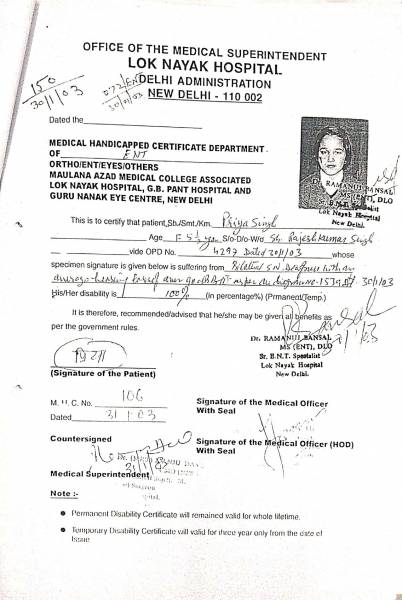 OFFICE OF THE MEDICAL SUPERINTENDENT
LOK NAYAK HOSPITAL
DELHI ADMINISTRATION
NEW DELHI - 110 002
150
30/1/03
Dated the
MEDICAL HANDICAPPED CERTIFICATE DEPARTMENT
OF ENT
ORTHO/ENT/EYES/OTHERS
MAULANA AZAD MEDICAL COLLEGE ASSOCIATED
LOK NAYAK HOSPITAL, G.B. PANT HOSPITAL AND
GURU NANAK EYE CENTRE, NEW DELHI
Dr. RAMANUJ BANSAL
MS (ENT), DLO
Lok Nayak Hospital
New Delhi.
This is to certify that patient Sh./Smt./Km. Priya Singh
Age F 5½ yr S/o-D/o-W/o Sh. Rajesh Kumar Singh
vide OPD No. 4297 Dated 20/1/03 whose
specimen signature is given below is suffering from Bilateral S.N. Deafness with an
average hearing 30/1/03
His/Her disability is 100% (in percentage%) (Prmanent/Temp.)
It is therefore, recommended/advised that he/she may be given all benefits as
per the government rules.
Dr. RAMANUJ BANSAL
MS (ENT), DLO
Sr. E.N.T. Specialist
Lok Nayak Hospital
New Delhi.
(Signature of the Patient)
M. H. C. No. 106
Dated 31/1/03
Signature of the Medical Officer
With Seal
Countersigned
Signature of the Medical Officer (HOD)
With Seal
Medical Superintendent
Note :-
Permanent Disability Certificate will remained valid for whole lifetime.
Temporary Disability Certificate will valid for three year only from the date of
Issue